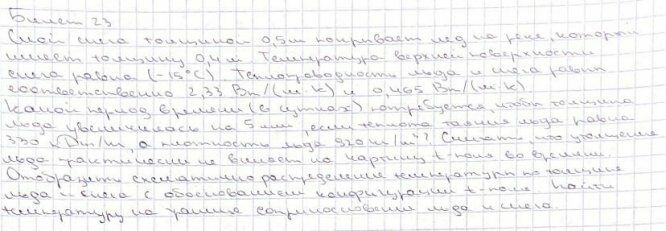 Билет 23
Слой снега толщиной 0,5м покрывает лед на реке, который
имеет толщину 0,4м. Температура верхней поверхности
снега равна (-15°С). Теплопроводности льда и снега равны
соответственно 2,33 Вт/(м·к) и 0,465 Вт/(м·к).
Какой период времени (в сутках) потребуется, чтобы толщина
льда увеличилась на 5мм, если теплота таяния льда равна
330 кДж/ а плотность льда 920 кг/м³? Считать, что утолщение
льда практически не влияет на картину t-поля во времени.
Отобразить схематично распределение температуры по толщине
льда и снега с обоснованием конфигурации t-поля. Найти
температуру на границе соприкосновения льда и снега.